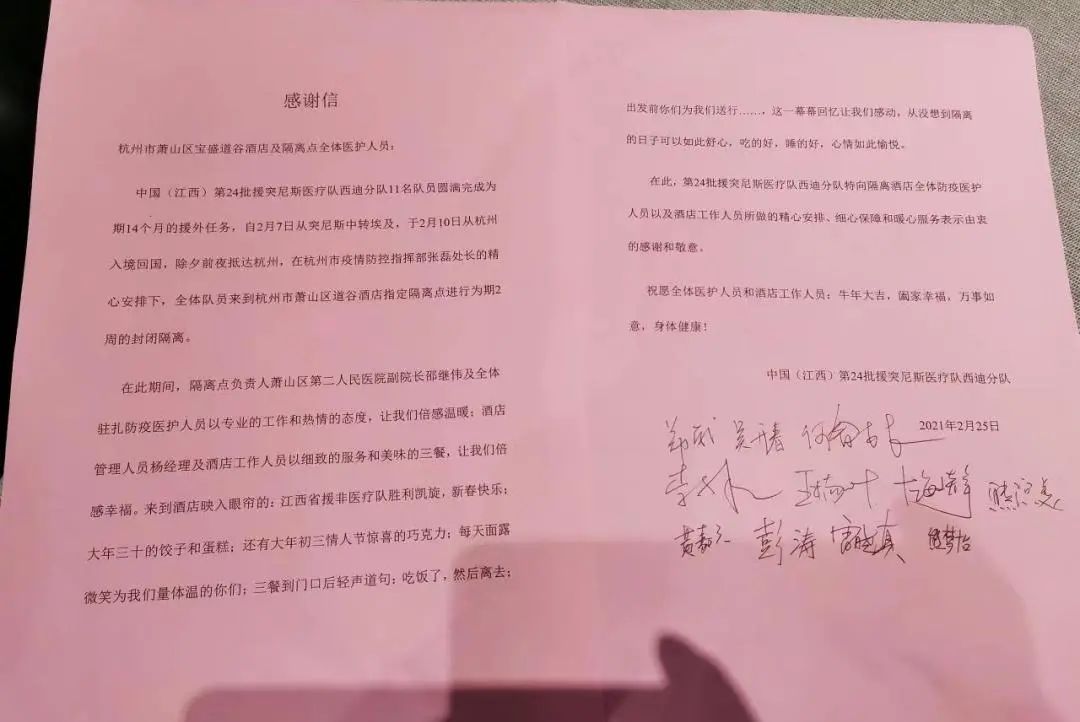 感谢信
杭州市萧山区宝盛道谷酒店及隔离点全体医护人员：
中国（江西）第24批援突尼斯医疗队西迪分队11名队员圆满完成为
期14个月的援外任务，自2月7日从突尼斯中转埃及，于2月10日从杭州
入境回国，除夕前夜抵达杭州，在杭州市疫情防控指挥部张磊处长的精
心安排下，全体队员来到杭州市萧山区道谷酒店指定隔离点进行为期2
周的封闭隔离。
在此期间，隔离点负责人萧山区第二人民医院副院长邵继伟及全体
驻扎防疫医护人员以专业的工作和热情的态度，让我们倍感温暖；酒店
管理人员杨经理及酒店工作人员以细致的服务和美味的三餐，让我们倍
感幸福。来到酒店映入眼帘的：江西省援非医疗队胜利凯旋，新春快乐；
大年三十的饺子和蛋糕；还有大年初三情人节惊喜的巧克力；每天面露
微笑为我们量体温的你们；三餐到门口后轻声道句；吃饭了，然后离去；
出发前你们为我们送行……，这一幕幕回忆让我们感动，从没想到隔离
的日子可以如此舒心，吃的好，睡的好，心情如此愉悦。
在此，第24批援突尼斯医疗队西迪分队特向隔离酒店全体防疫医护
人员以及酒店工作人员所做的精心安排、细心保障和暖心服务表示由衷
的感谢和敬意。
祝愿全体医护人员和酒店工作人员：牛年大吉，阖家幸福，万事如
意，身体健康！
中国（江西）第24批援突尼斯医疗队西迪分队
2021年2月25日
彭涛